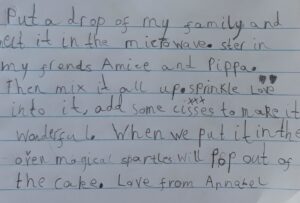 Put a drop of my family and
cut it in the microwave. ster in
my frends Amice and Pippa.
Then mix it all up. sprinkle Love
into it, add some cisses to make it
xxx
wonderful. When we put it in the
oven magical sparkles will pop out of
the cake. Love from Annabel